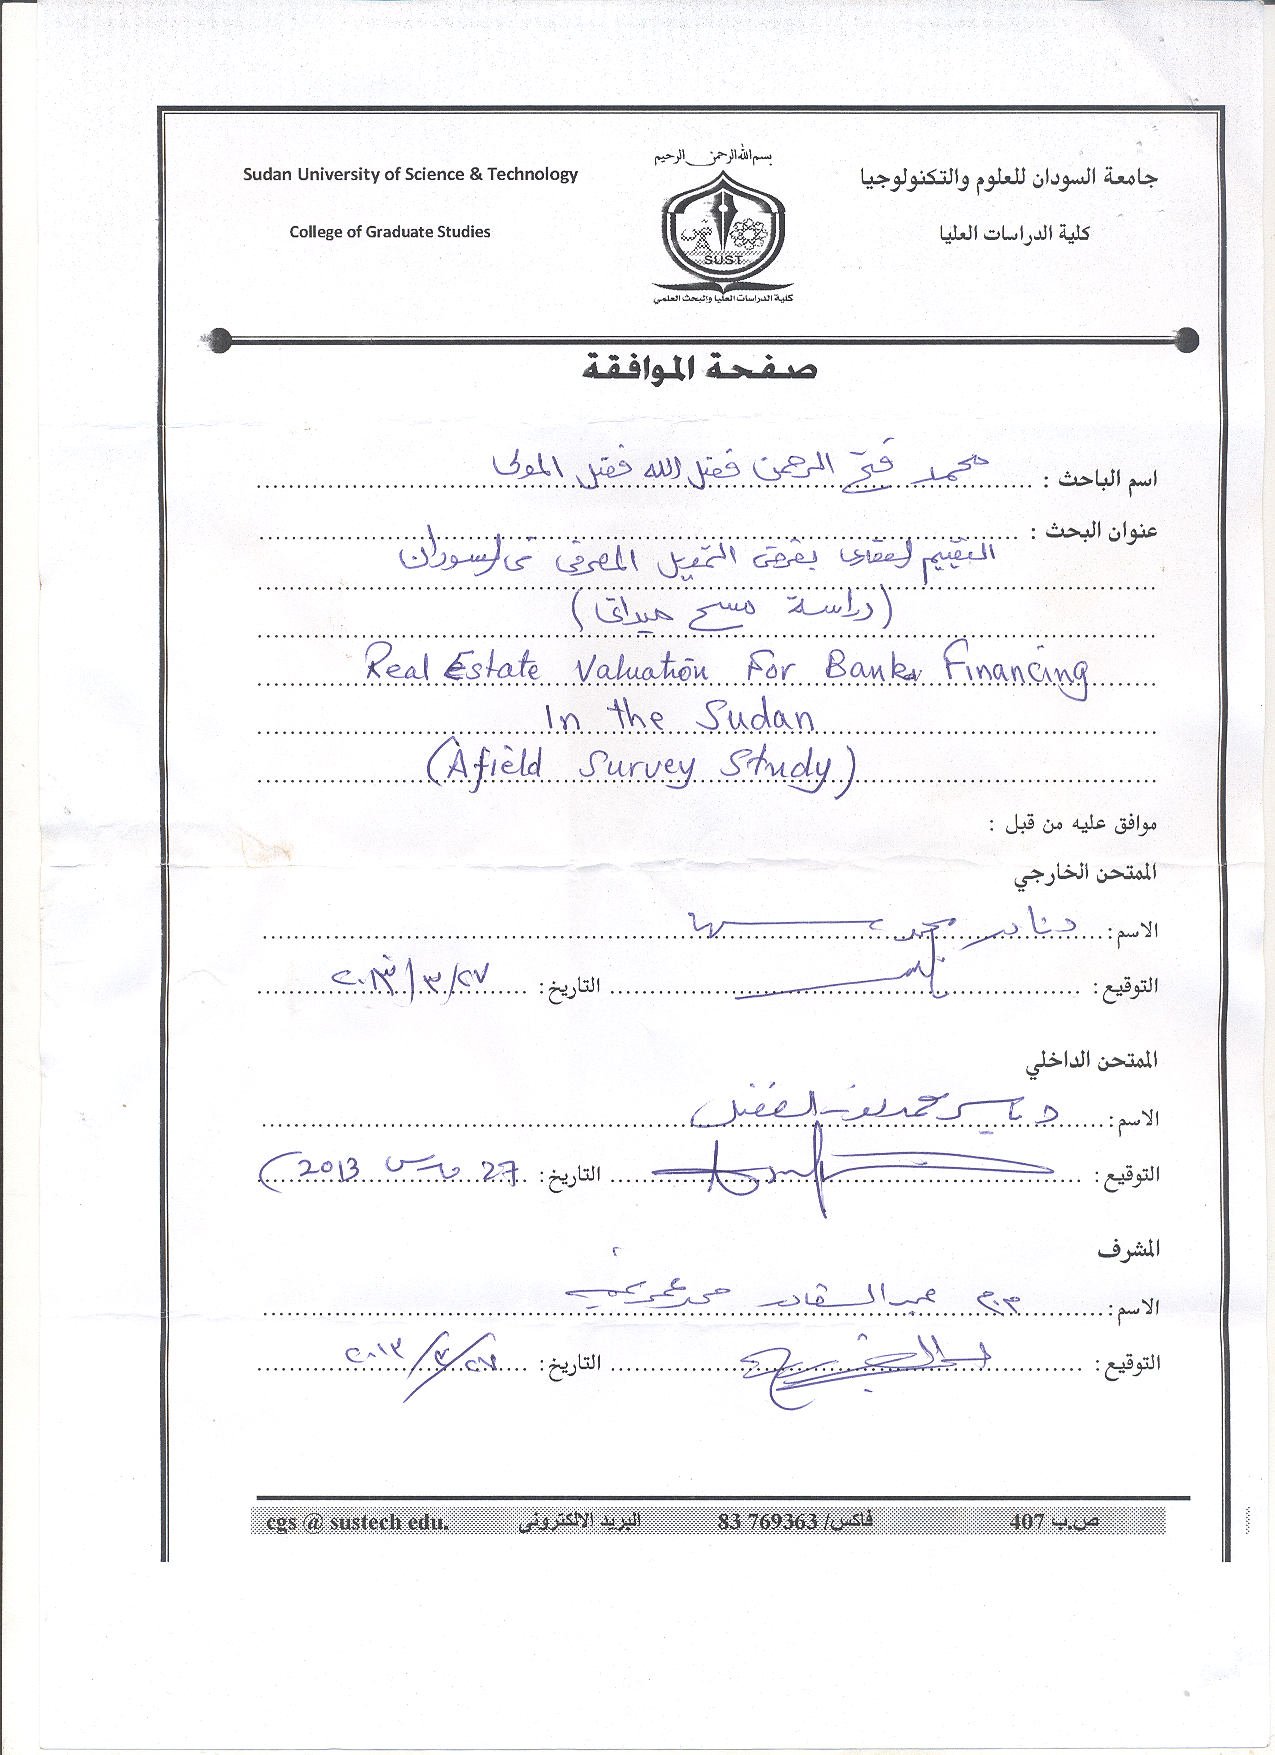 بسم الله الرحمن الرحيم
Sudan University of Science & Technology
جامعة السودان للعلوم والتكنولوجيا
College of Graduate Studies
كلية الدراسات العليا
SUST
كلية الدراسات العليا والبحث العلمي
صفحة الموافقة
اسم الباحث : محمد فتح الرحمن فضل الله فضل المولى
عنوان البحث :
التقييم العقاري بغرض التمويل المصرفي في السودان
(دراسة مسح ميداني)
Real Estate Valuation For Bank Financing
In the Sudan
(Afield Survey Study)
موافق عليه من قبل :
الممتحن الخارجي
الاسم: محمد
التوقيع: التاريخ: ٢٠١٣/٣/٢٧
الممتحن الداخلي
الاسم: د ياسر محمد الفضل
التوقيع: التاريخ: 27 مارس 2013
المشرف
الاسم: عبد القادر محمد
التوقيع: التاريخ: ٢٠١٣/٣/٢٧
ص.ب 407 فاكس/ 83 769363 البريد الالكتروني cgs @ sustech edu.